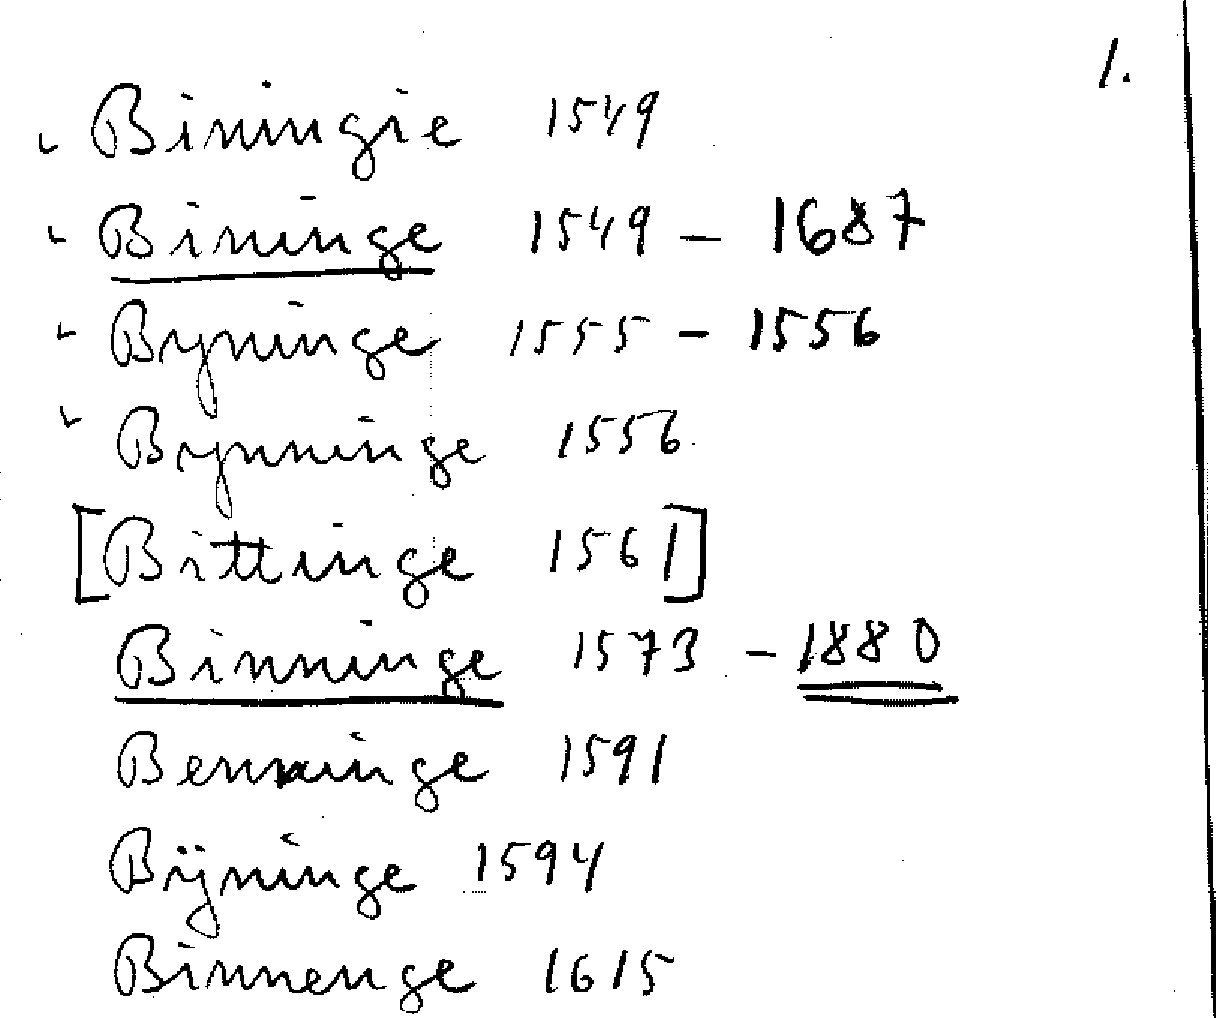 1.
Biningie 1549
Bininge 1549 – 1687
Byninge 1555 – 1556
Bynninge 1556.
[Bittinge 1561]
Binninge 1573 – 1880
Benninge 1591
Bÿninge 1594
Binnenge 1615